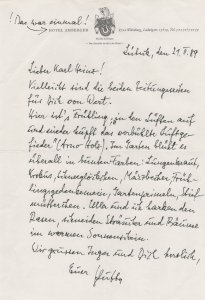 ! Das war einmal!
HOTEL AMBERGER
Lübeck, den 21. II. 89
Lieber Karl Heinz!
Vielleicht sind die beiden Zeitungsseiten
für Dich von Wert.
Hier ist's Frühling, „in den Lüften auf
und nieder hüpft das verbuhlt Luftge-
fieder“ (Arno Holz). Im Garten blüht es
überall in bunten Farben: Lungenkraut,
Krokus, Schneeglöckchen, Märzbecher, Früh-
lingsgedenkemein, Gartenprimeln, Stief-
mütterchen. Ulla und ich harken den
Rasen, schneiden Sträucher und Bäume
im warmen Sonnenschein.
Wir grüssen Inger und Dich herzlich,
Euer